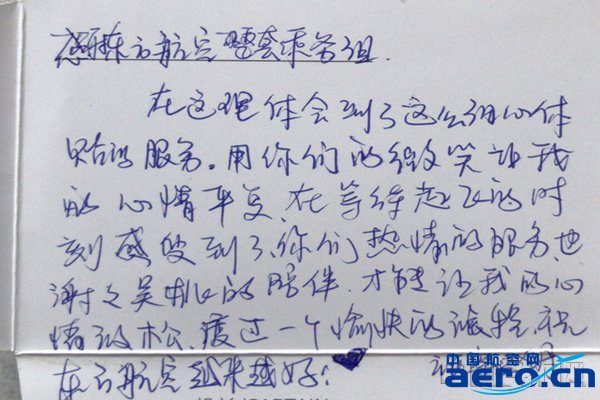 感谢东方航空 乘务组.
在这里体会到了这么细心体
贴的服务。用你们的微笑让我
的心情平复、在等待起飞的时
刻感受到了你们热情的服务,也
谢之 的陪伴.才能让我的心
情放松,度过一个愉快的旅程.祝
东方航空越来越好!
中国航空网
aero.cn